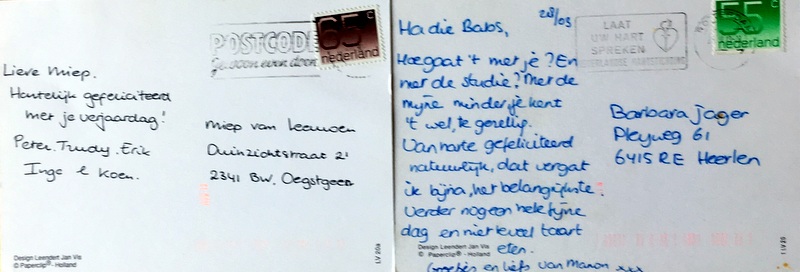 POSTCODE
65 c
nederland
Lieve Miep.
Hartelijk gefeliciteerd
met je verjaardag!
Peter. Trudy. Erik
Inge & Koen.
Miep van Leeuwen
Duinzichtstraat 21
2341 BW. Oegstgeest
Design Leendert Jan Vis
© Paperclip® - Holland
28/03
LAAT
UW HART
SPREKEN
55 c
nederland
Ha die Babs,
Hoe gaat 't met je? En
met de studie? Met de
mijne minder, je kent
't wel, te gezellig.
Van harte gefeliciteerd
natuurlijk, dat vergat
ik bijna, het belangrijkste!
Verder nog een hele fijne
dag en niet teveel taart
eten.
Groetjes en liefs van Manon xxx
Barbara Jager
Pleyweg 61
6415 RE Heerlen
Design Leendert Jan Vis
© Paperclip® - Holland